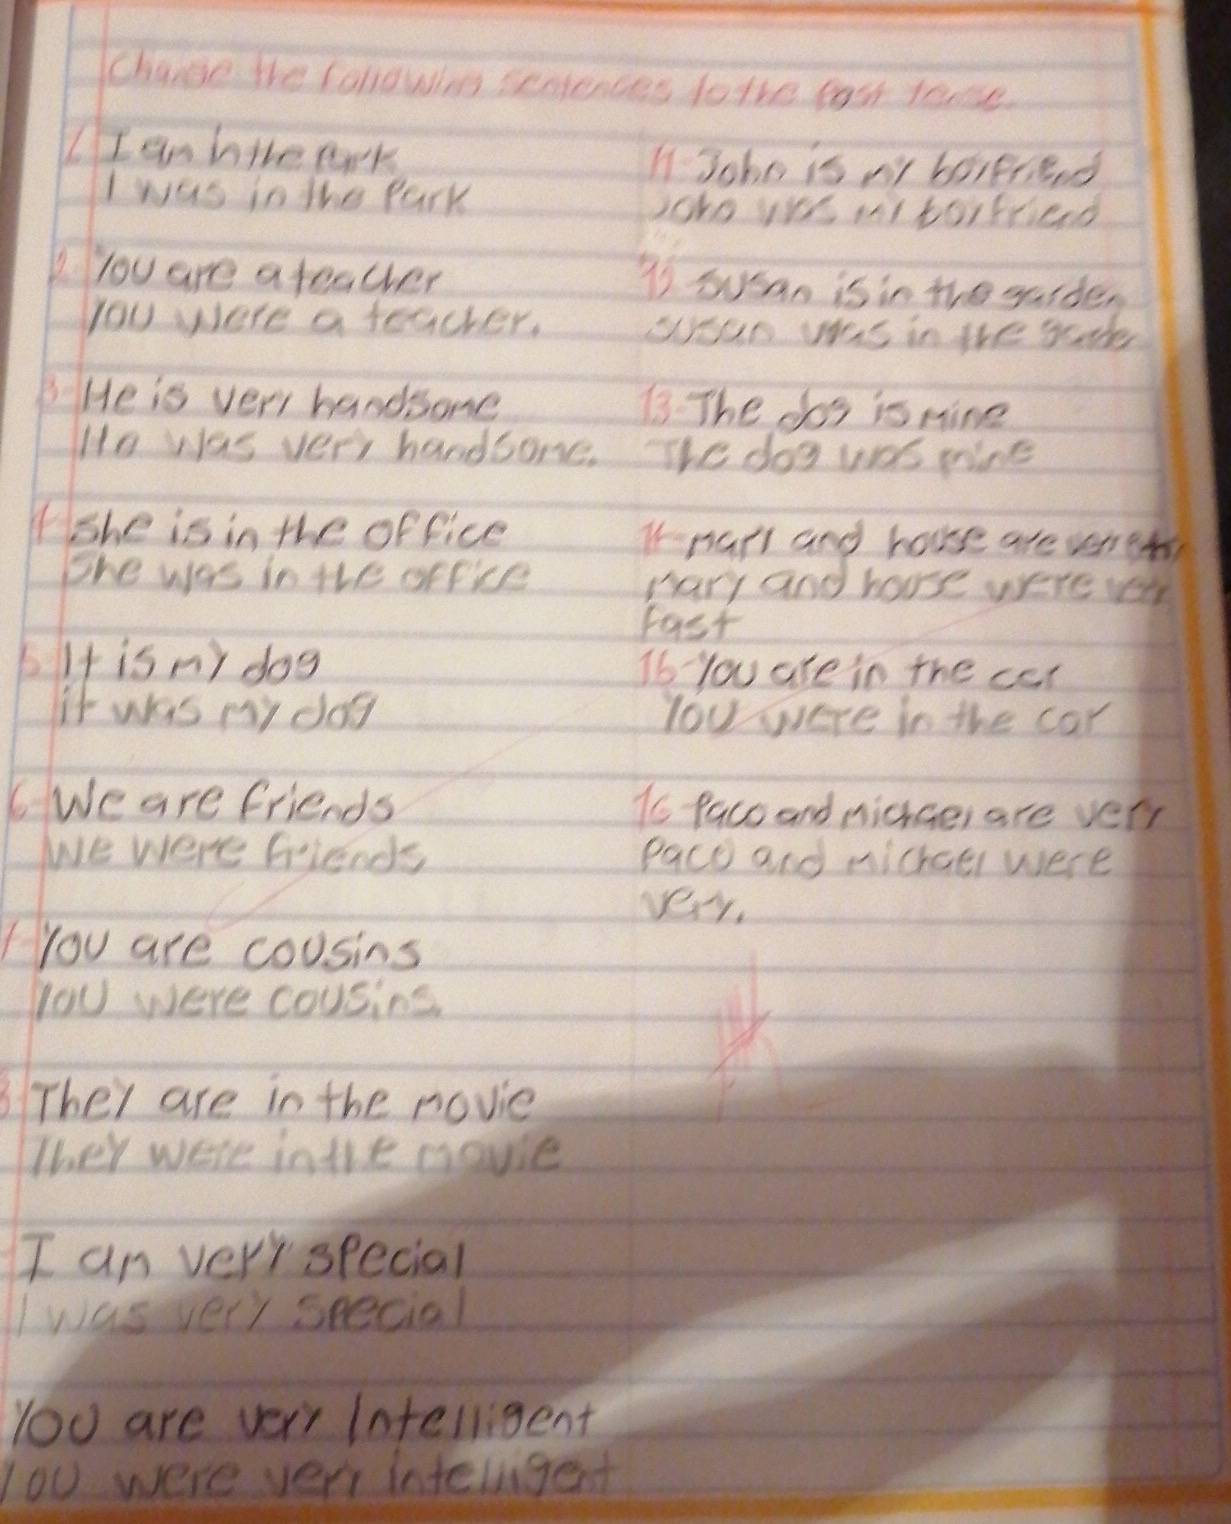 Change the following sentences to the past tense.
1- I am in the Park
I was in the Park
2- You are a teacher
You were a teacher.
3- He is very handsome
He was very handsome.
4- She is in the office
She was in the office
5- It is my dog
it was my dog
6- We are friends
We were friends
7- You are cousins
You were cousins.
8- They are in the movie
They were in the movie
I am very special
I was very special
You are very Intelligent
You were very intelligent
11- John is my boyfriend
John was my boyfriend
12 Susan is in the garden
Susan was in the garden
13- The dog is mine
The dog was mine
14- Mary and house are very
Mary and house were very
fast
16- You are in the car
You were in the car
16 Paco and Michael are very
Paco and Michael were
very.